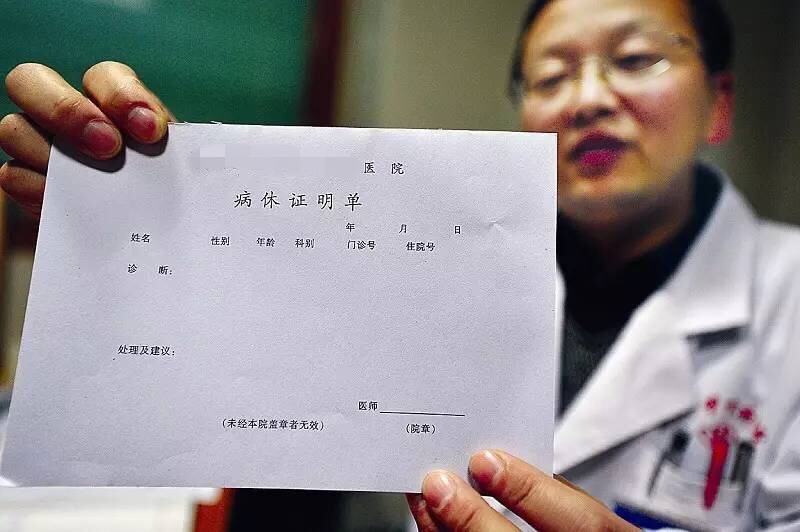 医 院
病休证明单
年 月 日
姓名 性别 年龄 科别 门诊号 住院号
诊 断：
处理及建议：
医师
(未经本院盖章者无效) (院章)